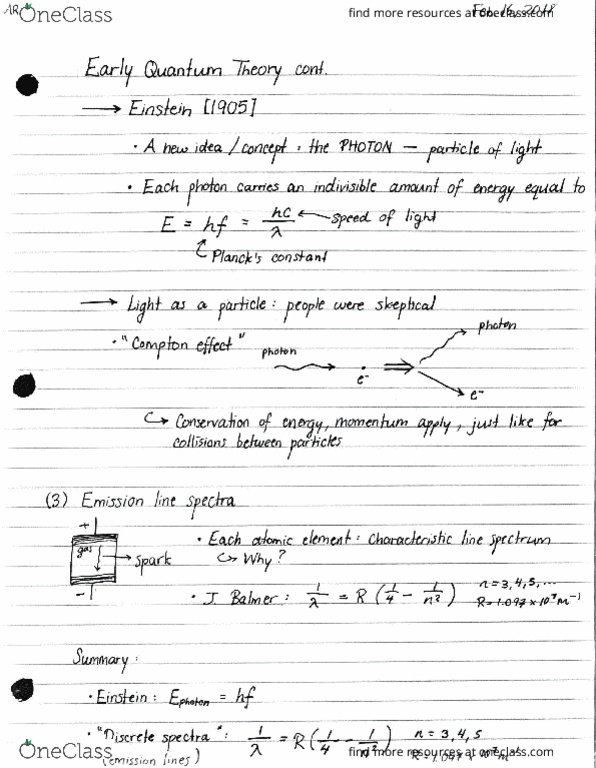 AR
OneClass
find more resources at oneclass.com
Feb 16, 2018
Early Quantum Theory cont.
→ Einstein [1905]
• A new idea / concept : the PHOTON — particle of light
• Each photon carries an indivisible amount of energy equal to
E = hf = hc/λ ← speed of light
Planck's constant
→ Light as a particle : people were skeptical
• "Compton effect"
photon
e⁻
⇒
photon
e⁻
↪ Conservation of energy, momentum apply, just like for
collisions between particles
(3) Emission line spectra
+
gas
→ spark
-
• Each atomic element : characteristic line spectrum
↪ Why ?
• J. Balmer : 1/λ = R (1/4 - 1/n²) n = 3, 4, 5, ...
R = 1.097 × 10⁷ m⁻¹
Summary :
• Einstein : Ephoton = hf
• "Discrete spectra" : 1/λ = R (1/4 - 1/n²) n = 3, 4, 5
(emission lines) R = 1.097 × 10⁷ m⁻¹
OneClass
find more resources at oneclass.com